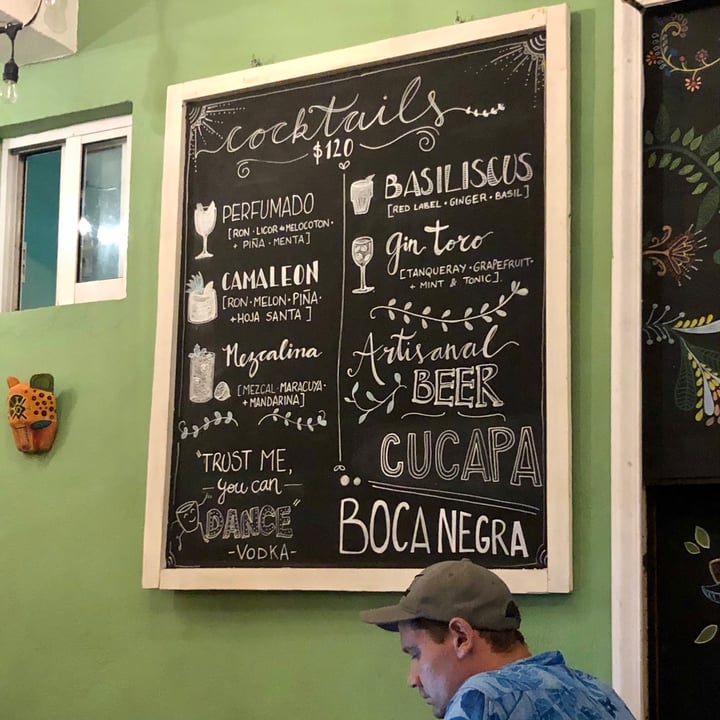 cocktails
$120
PERFUMADO
[RON · LICOR de MELOCOTON ·
+ PIÑA · MENTA]
CAMALEON
[RON · MELON · PIÑA ·
+ HOJA SANTA]
Mezcalina
[MEZCAL · MARACUYA ·
+ MANDARINA]
"TRUST ME,
- you can -
DANCE"
- VODKA -
BASILISCUS
[RED LABEL · GINGER · BASIL]
gin toro
[TANQUERAY · GRAPEFRUIT ·
+ MINT & TONIC].
Artisanal
BEER
CUCAPA
BOCA NEGRA